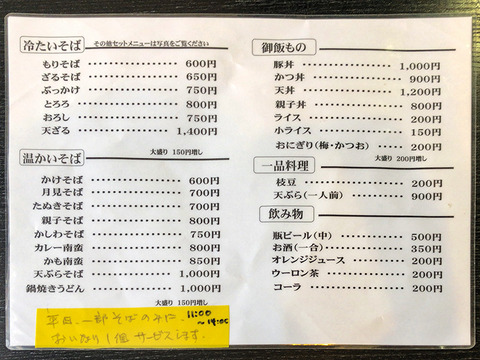 冷たいそば その他セットメニューは写真をご覧ください
もりそば ………… 600円
ざるそば ………… 650円
ぶっかけ ………… 750円
とろろ ………… 800円
おろし ………… 750円
天ざる ………… 1,400円
大盛り 150円増し
温かいそば
かけそば ………… 600円
月見そば ………… 700円
たぬきそば ………… 700円
親子そば ………… 800円
かしわそば ………… 750円
カレー南蛮 ………… 800円
かも南蛮 ………… 850円
天ぷらそば ………… 1,000円
鍋焼きうどん ………… 1,000円
大盛り 150円増し
平日、一部そばのみに、11:00
～14:00
おいなり1個サービスします。
御飯もの
豚丼 ………… 1,000円
かつ丼 ………… 900円
天丼 ………… 1,200円
親子丼 ………… 800円
ライス ………… 200円
小ライス ………… 150円
おにぎり(梅・かつお) ………… 200円
大盛り 200円増し
一品料理
枝豆 ………… 200円
天ぷら(一人前) ………… 900円
飲み物
瓶ビール(中) ………… 500円
お酒(一合) ………… 350円
オレンジジュース ………… 200円
ウーロン茶 ………… 200円
コーラ ………… 200円